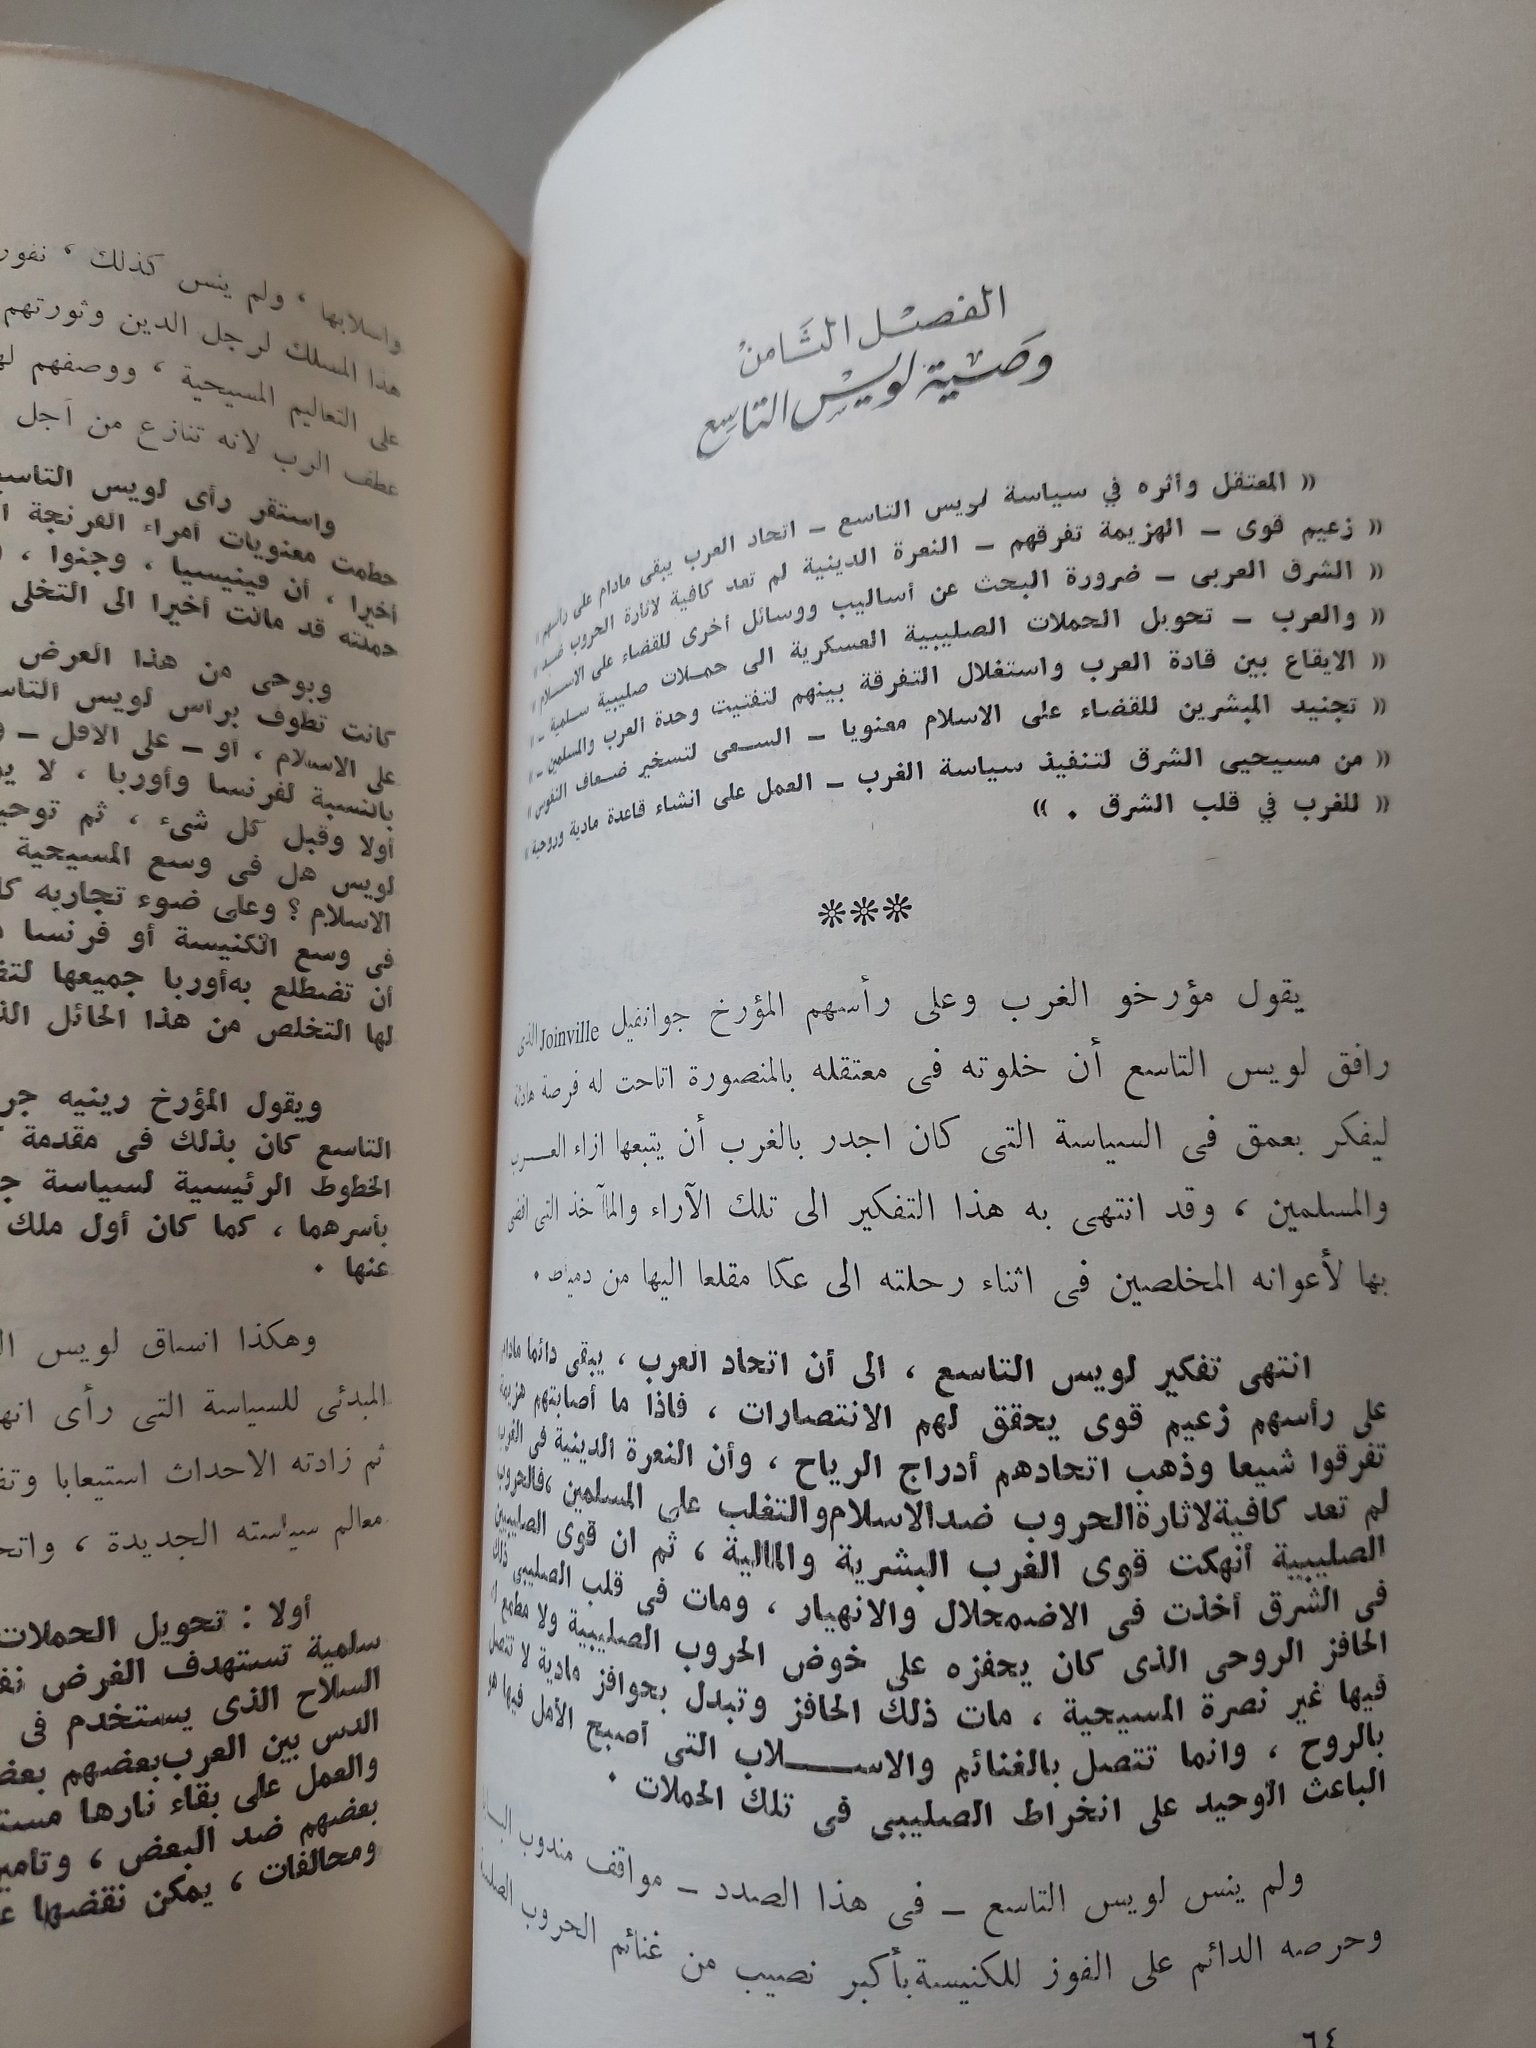 الفصل الثامن
وصية لويس التاسع
« المعتقل وأثره في سياسة لويس التاسع ــ اتحاد العرب يبقى مادام على رأسهم »
« زعيم قوى ــ الهزيمة تفرقهم ــ النعرة الدينية لم تعد كافية لاثارة الحروب ضد »
« الشرق العربى ــ ضرورة البحث عن أساليب ووسائل أخرى للقضاء على الاسلام »
« والعرب ــ تحويل الحملات الصليبية العسكرية الى حملات صليبية سلمية ــ »
« الايقاع بين قادة العرب واستغلال التفرقة بينهم لتفتيت وحدة العرب والمسلمين ــ »
« تجنيد المبشرين للقضاء على الاسلام معنويا ــ السعى لتسخير ضعاف النفوس »
« من مسيحيى الشرق لتنفيذ سياسة الغرب ــ العمل على انشاء قاعدة مادية وروحية »
« للغرب في قلب الشرق . »
***
يقول مؤرخو الغرب وعلى رأسهم المؤرخ جوانفيل Joinville الذى
رافق لويس التاسع أن خلوته فى معتقله بالمنصورة اتاحت له فرصة هادئة
ليفكر بعمق فى السياسة التى كان اجدر بالغرب أن يتبعها ازاء العرب
والمسلمين ، وقد انتهى به هذا التفكير الى تلك الآراء والمآخذ التى افضى
بها لأعوانه المخلصين فى اثناء رحلته الى عكا مقلعا اليها من دمياط .
انتهى تفكير لويس التاسع ، الى أن اتحاد العرب ، يبقى دائما مادام
على رأسهم زعيم قوى يحقق لهم الانتصارات ، فاذا ما أصابتهم هزيمة
تفرقوا شيعا وذهب اتحادهم أدراج الرياح ، وأن النعرة الدينية فى الغرب
لم تعد كافية لاثارة الحروب ضد الاسلام والتغلب على المسلمين ، فالحروب
الصليبية أنهكت قوى الغرب البشرية والمالية ، ثم ان قوى الصليبيين
فى الشرق أخذت فى الاضمحلال والانهيار ، ومات فى قلب الصليبى ذلك
الحافز الروحى الذى كان يحفزه على خوض الحروب الصليبية ولا مطمع له
فيها غير نصرة المسيحية ، مات ذلك الحافز وتبدل بحوافز مادية لا تتصل
بالروح ، وانما تتصل بالغنائم والاسلاب التى أصبح الأمل فيها هو
الباعث الأوحيد على انخراط الصليبى فى تلك الحملات .
ولم ينس لويس التاسع ــ فى هذا الصدد ــ مواقف مندوب
وحرصه الدائم على الفوز للكنيسة بأكبر نصيب من غنائم الحروب
٦٤
واسلابها ، ولم ينس كذلك ، نفور
هذا المسلك لرجل الدين وثورتهم
على التعاليم المسيحية ، ووصفهم
عطف الرب لانه تنازع من أجل
واستقر رأى لويس التاسع
حطمت معنويات أمراء الفرنجة
أخيرا ، أن فينيسيا ، وجنوا ،
حملته قد مالت أخيرا الى التخلى
ويوحى من هذا العرض
كانت تطوف برأس لويس
على الاسلام ، أو ــ على الاقل ــ
بالنسبة لفرنسا وأوربا ، لا
أولا وقبل كل شىء ، ثم
لويس هل فى وسع المسيحية
الاسلام ؟ وعلى ضوء تجاربه
فى وسع الكنيسة أو فرنسا
أن تضطلع به أوربا جميعها
لها التخلص من هذا الحائل
ويقول المؤرخ رينيه
التاسع كان بذلك فى مقدمة
الخطوط الرئيسية لسياسة
بأسرهما ، كما كان أول ملك
عنها .
وهكذا انساق لويس
المبدئى للسياسة التى رأى
ثم زادته الاحداث استيعابا
معالم سياسته الجديدة ،
أولا : تحويل الحملات
سلمية تستهدف الغرض
السلاح الذى يستخدم فى
الدس بين العرب بعضهم
والعمل على بقاء نارها
بعضهم ضد البعض ،
ومحالفات ، يمكن نقضها